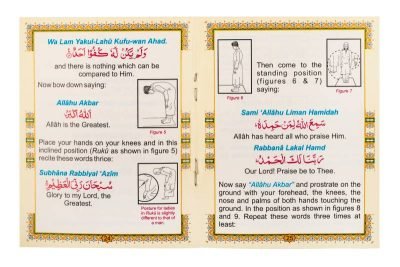 Wa Lam Yakul-Lahû Kufu-wan Ahad.
وَلَمْ يَكُنْ لَّهُ كُفُوًا أَحَدٌ
and there is nothing which can be
compared to Him.
Now bow down saying:
Allâhu Akbar
اَللهُ أَكْبَرُ
Allâh is the Greatest.
Figure 5
Place your hands on your knees and in this
inclined position (Rukû as shown in figure 5)
recite these words thrice:
Subhâna Rabbiyal 'Azîm
سُبْحَانَ رَبِّيَ الْعَظِيْمِ
Glory to my Lord, the
Greatest.
Posture for ladies
in Rukû is slightly
different to that of
a man.
Figure 6
Then come to the
standing position
(figures 6 & 7)
saying:
Figure 7
Sami 'Allâhu Liman Hamidah
سَمِعَ اللهُ لِمَنْ حَمِدَهُ
Allâh has heard all who praise Him.
Rabbanâ Lakal Hamd
رَبَّنَا لَكَ الْحَمْدُ
Our Lord! Praise be to Thee.
Now say "Allâhu Akbar" and prostrate on the
ground with your forehead, the knees, the
nose and palms of both hands touching the
ground. In the position as shown in figures 8
and 9. Repeat these words three times at
least: